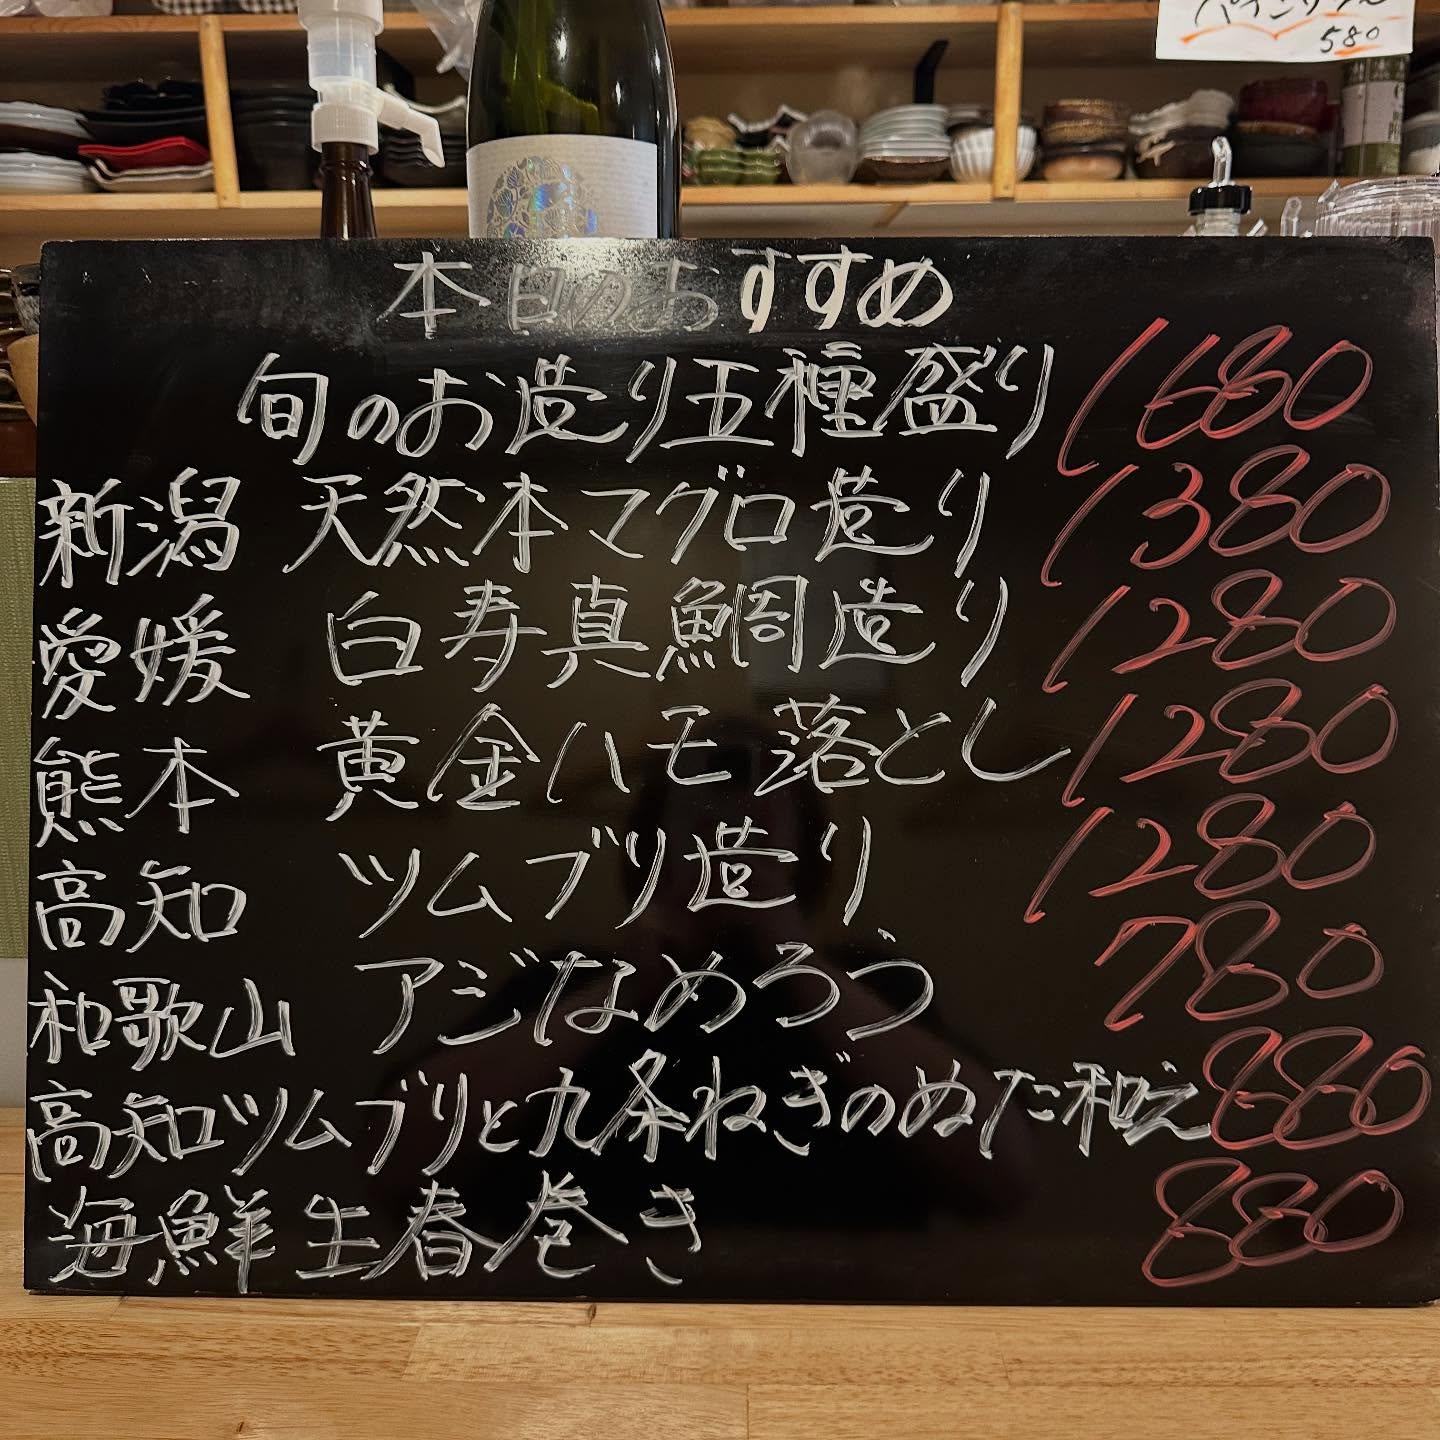 580
本日のおすすめ
旬のお造り五種盛り 1680
新潟 天然本マグロ造り 1380
愛媛 白寿真鯛造り 1280
熊本 黄金ハモ落とし 1280
高知 ツムブリ造り 1280
和歌山 アジなめろう 780
高知ツムブリと九条ねぎのぬた和え 880
海鮮生春巻き 880